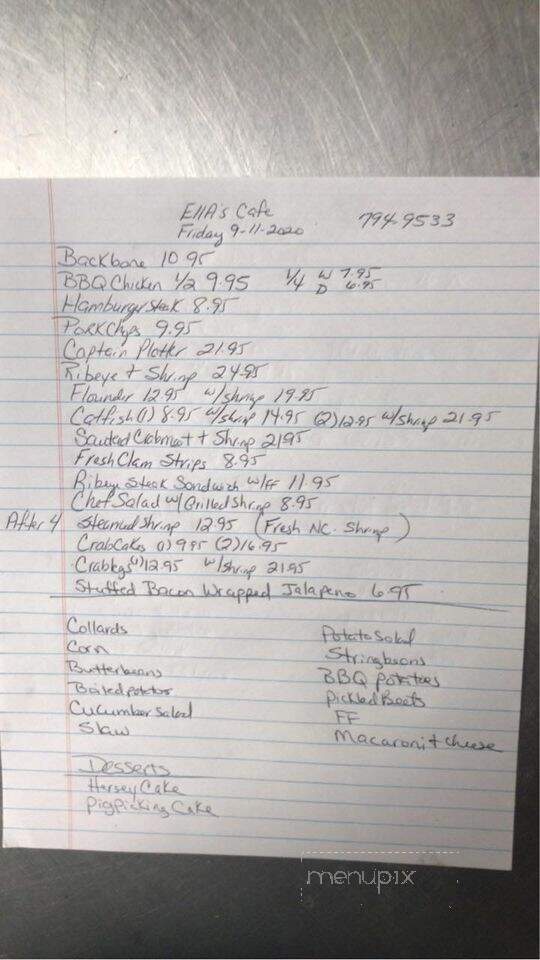 Ella's Cafe 794-9533
Friday 9-11-2020
Backbone 10.95
BBQ Chicken 1/2 9.95 1/4 W 7.95
D 6.95
Hamburger steak 8.95
Pork Chops 9.95
Captain Platter 21.95
Ribeye + Shrimp 24.95
Flounder 12.95 w/shrimp 19.95
Catfish (1) 8.95 w/shrimp 14.95 (2) 12.95 w/shrimp 21.95
Sauteed Crabmeat + Shrimp 21.95
Fresh Clam Strips 8.95
Ribeye Steak Sandwich w/FF 11.95
Chef Salad w/ Grilled Shrimp 8.95
After 4 Steamed Shrimp 12.95 (Fresh NC. Shrimp)
Crab Cakes (1) 9.95 (2) 16.95
Crablegs (1) 12.95 w/shrimp 21.95
Stuffed Bacon Wrapped Jalapeno 6.95
Collards
Corn
Butterbeans
Boiled potatoes
Cucumber Salad
Slaw
Potato Salad
Stringbeans
BBQ potatoes
Pickled Beets
FF
Macaroni + cheese
Desserts
Hersey Cake
Pig Picking Cake
menupix